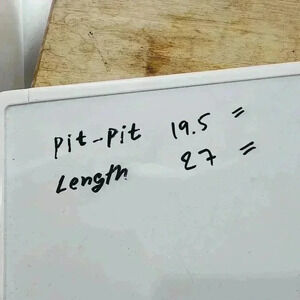 Pit-Pit 19.5 "
Length 27 "